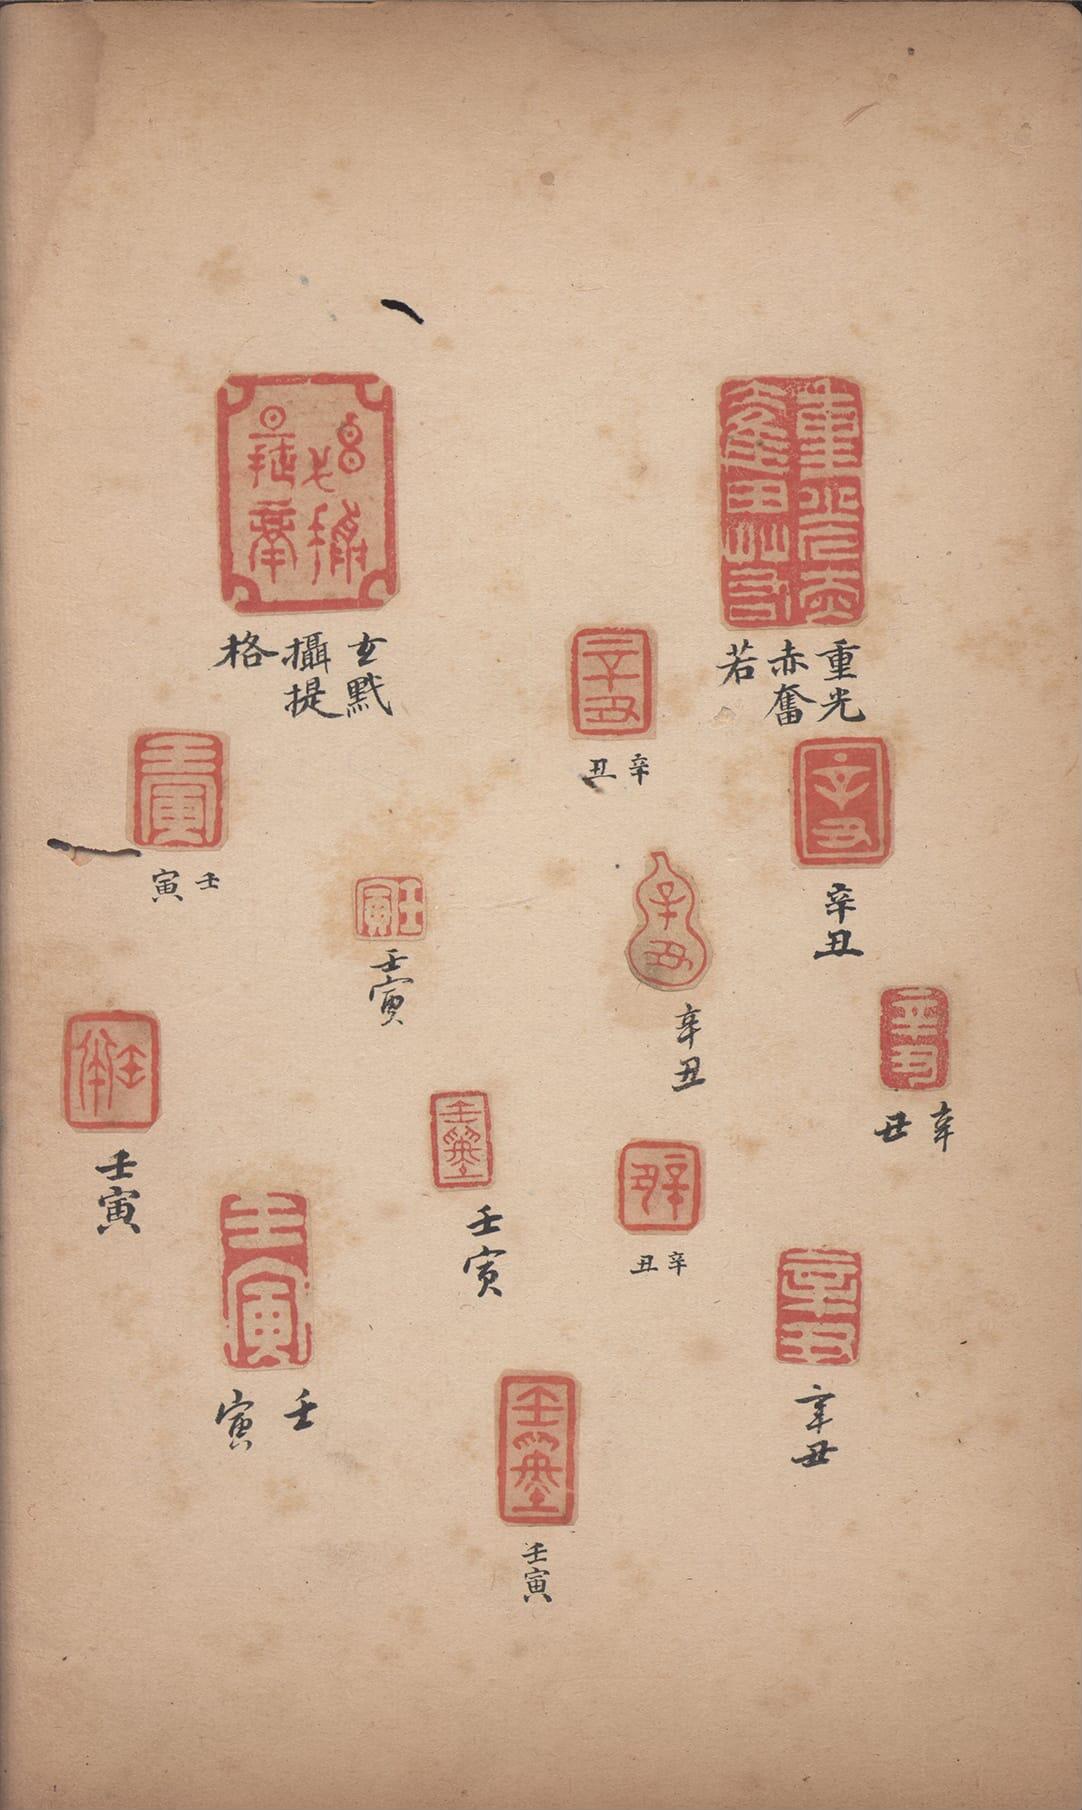 重光
赤奮
若
辛丑
辛丑
辛丑
辛丑
辛丑
辛丑
玄黓
攝提
格
壬寅
壬寅
壬寅
壬寅
壬寅
壬寅